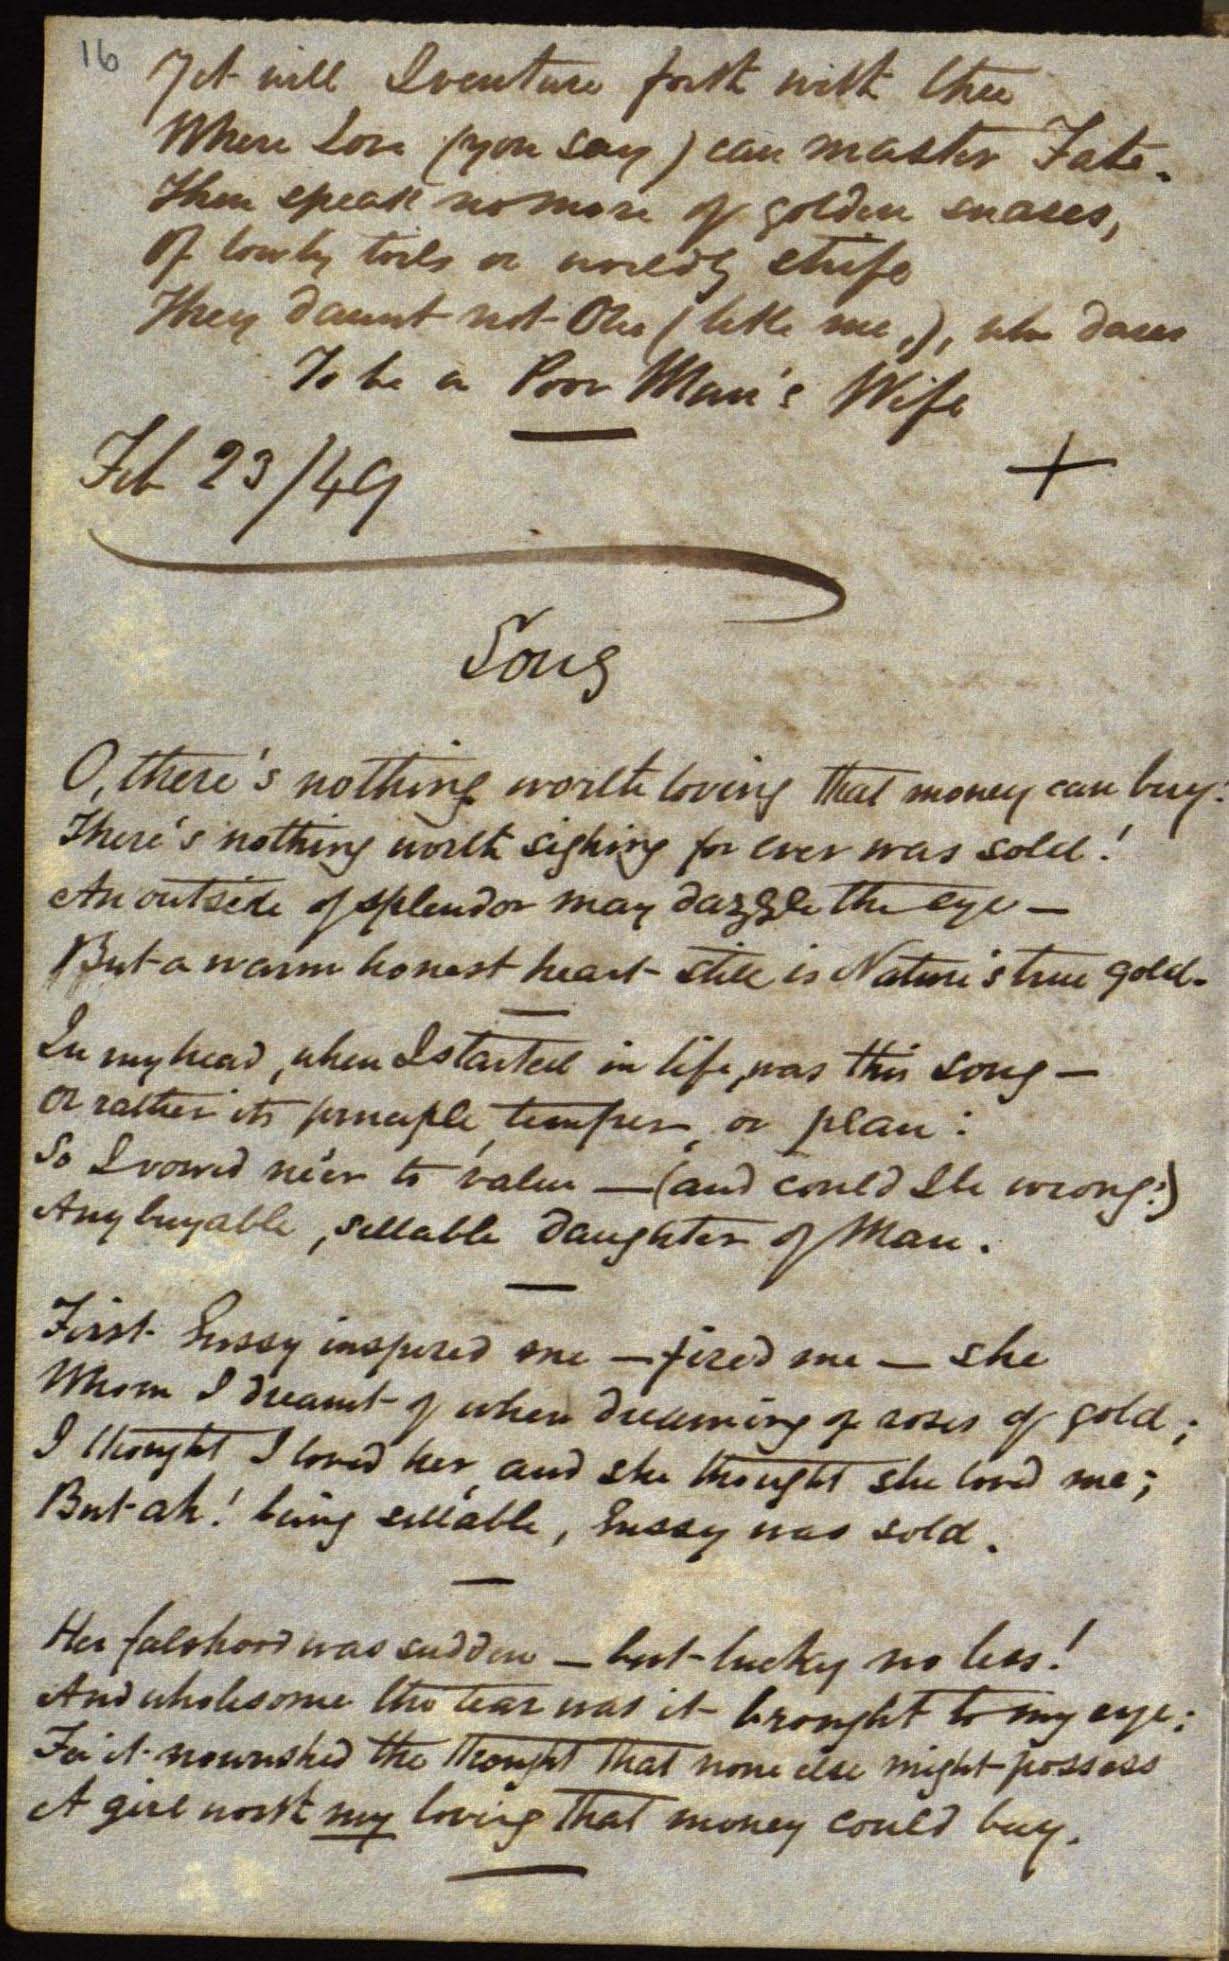 16
Yet will I venture forth with thee
Where Love (you say) can master Fate.
Then speak no more of golden snares,
Of lowly toils or worldly strife
They daunt not One (like me,), who dares
To be a Poor Man's Wife
Feb 23/49
+
Song
O, there's nothing worth loving that money can buy.
There's nothing worth sighing for ever was sold!
An outside of splendor may dazzle the eye —
But a warm honest heart still is Nature's true gold.
In my head, when I started in life, was this song —
Or rather its principle, temper, or plan:
So I vowed ne'er to value — (and could I be wrong?)
Any buyable, sellable daughter of Man.
First Sussy inspired me — fired me — she
Whom I dreamt of when dreaming of roses of gold;
I thought I loved her, and she thought she loved me;
But ah! being sellable, Sussy was sold.
Her falshood was sudden — but lucky no less!
And wholesome the tear was it brought to my eye;
For it nourished the thought that none else might possess
A girl worth my loving that money could buy.